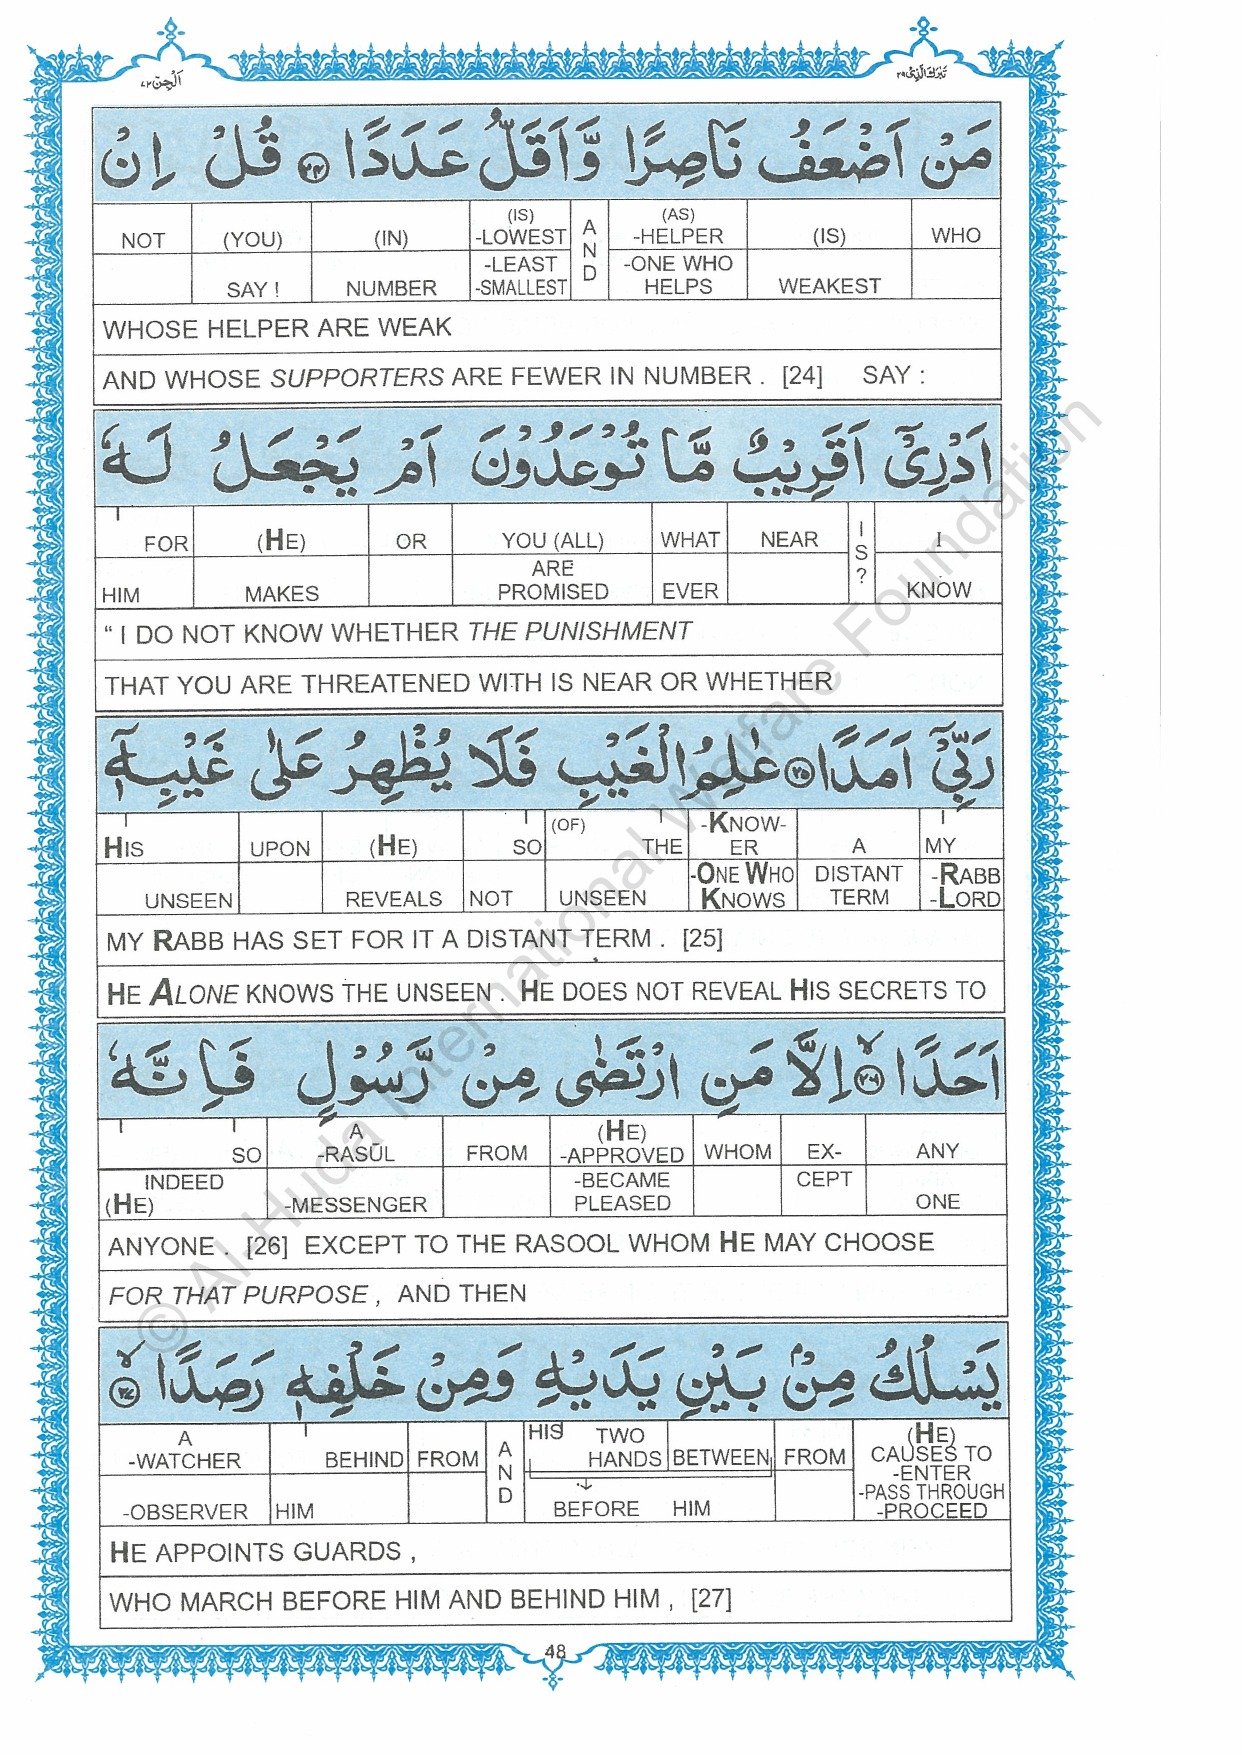 اَلْجِنّ ٧٢
تَبٰرَكَ الَّذِىْ ٢٩
مَنْ اَضْعَفُ نَاصِرًا وَّاَقَلُّ عَدَدًا ۝٢٤ قُلْ اِنْ
NOT (YOU) (IN) (IS) -LOWEST AND (AS) -HELPER (IS) WHO
SAY ! NUMBER -LEAST -SMALLEST -ONE WHO HELPS WEAKEST
WHOSE HELPER ARE WEAK
AND WHOSE SUPPORTERS ARE FEWER IN NUMBER . [24] SAY :
اَدْرِىْٓ اَقَرِيْبٌ مَّا تُوْعَدُوْنَ اَمْ يَجْعَلُ لَهٗ
FOR (HE) OR YOU (ALL) WHAT NEAR IS? I
HIM MAKES ARE PROMISED EVER KNOW
“ I DO NOT KNOW WHETHER THE PUNISHMENT
THAT YOU ARE THREATENED WITH IS NEAR OR WHETHER
رَبِّىْٓ اَمَدًا ۝٢٥ عٰلِمُ الْغَيْبِ فَلَا يُظْهِرُ عَلٰى غَيْبِهٖٓ
HIS UPON (HE) SO (OF) THE -KNOW-ER A MY
UNSEEN REVEALS NOT UNSEEN -ONE WHO KNOWS DISTANT TERM -RABB -LORD
MY RABB HAS SET FOR IT A DISTANT TERM . [25]
HE ALONE KNOWS THE UNSEEN . HE DOES NOT REVEAL HIS SECRETS TO
اَحَدًا ۝٢٦ۙ اِلَّا مَنِ ارْتَضٰى مِنْ رَّسُوْلٍ فَاِنَّهٗ
SO A -RASŪL FROM (HE) -APPROVED WHOM EX- ANY
INDEED (HE) -MESSENGER -BECAME PLEASED CEPT ONE
ANYONE . [26] EXCEPT TO THE RASOOL WHOM HE MAY CHOOSE
FOR THAT PURPOSE , AND THEN
يَسْلُكُ مِنْۢ بَيْنِ يَدَيْهِ وَمِنْ خَلْفِهٖ رَصَدًا ۝٢٧ۙ
A -WATCHER BEHIND FROM AND HIS TWO HANDS BETWEEN FROM (HE) CAUSES TO -ENTER
-OBSERVER HIM BEFORE HIM -PASS THROUGH -PROCEED
HE APPOINTS GUARDS ,
WHO MARCH BEFORE HIM AND BEHIND HIM , [27]
48
© Al-Huda International Welfare Foundation